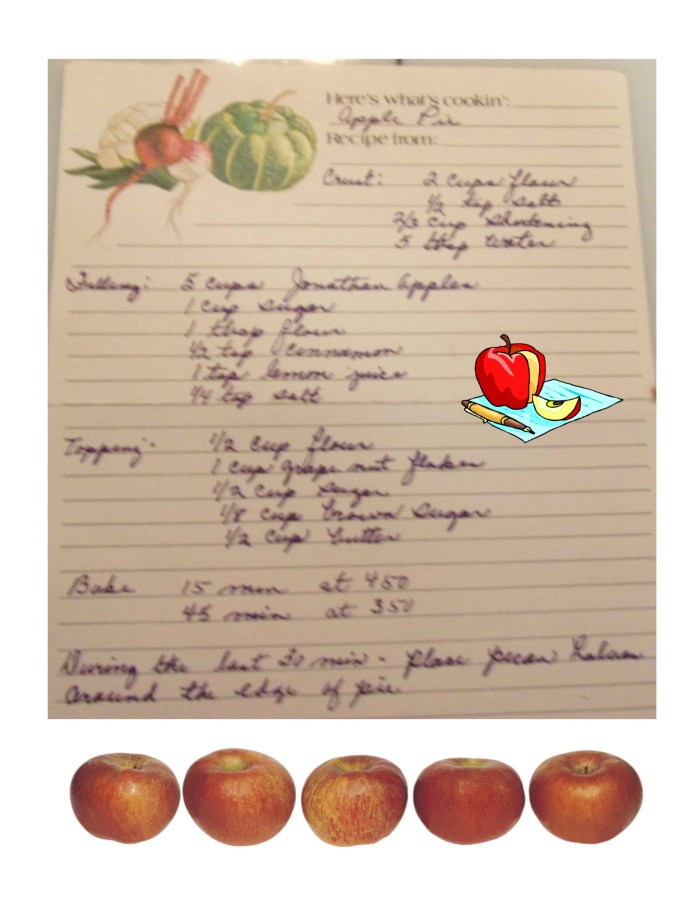 Here's what's cookin':
Apple Pie
Recipe from:
Crust: 2 cups flour
1/2 tsp salt
2/3 cup shortening
5 tbsp water
Filling: 5 cups Jonathan Apples
1 cup sugar
1 tbsp flour
1/2 tsp cinnamon
1 tsp lemon juice
1/4 tsp salt
Topping - 1/2 cup flour
1 cup grape nut flakes
1/2 cup sugar
1/8 cup brown sugar
1/2 cup butter
Bake 15 min at 450
45 min at 350
During the last 30 min - place pecan halves
around the edge of pie